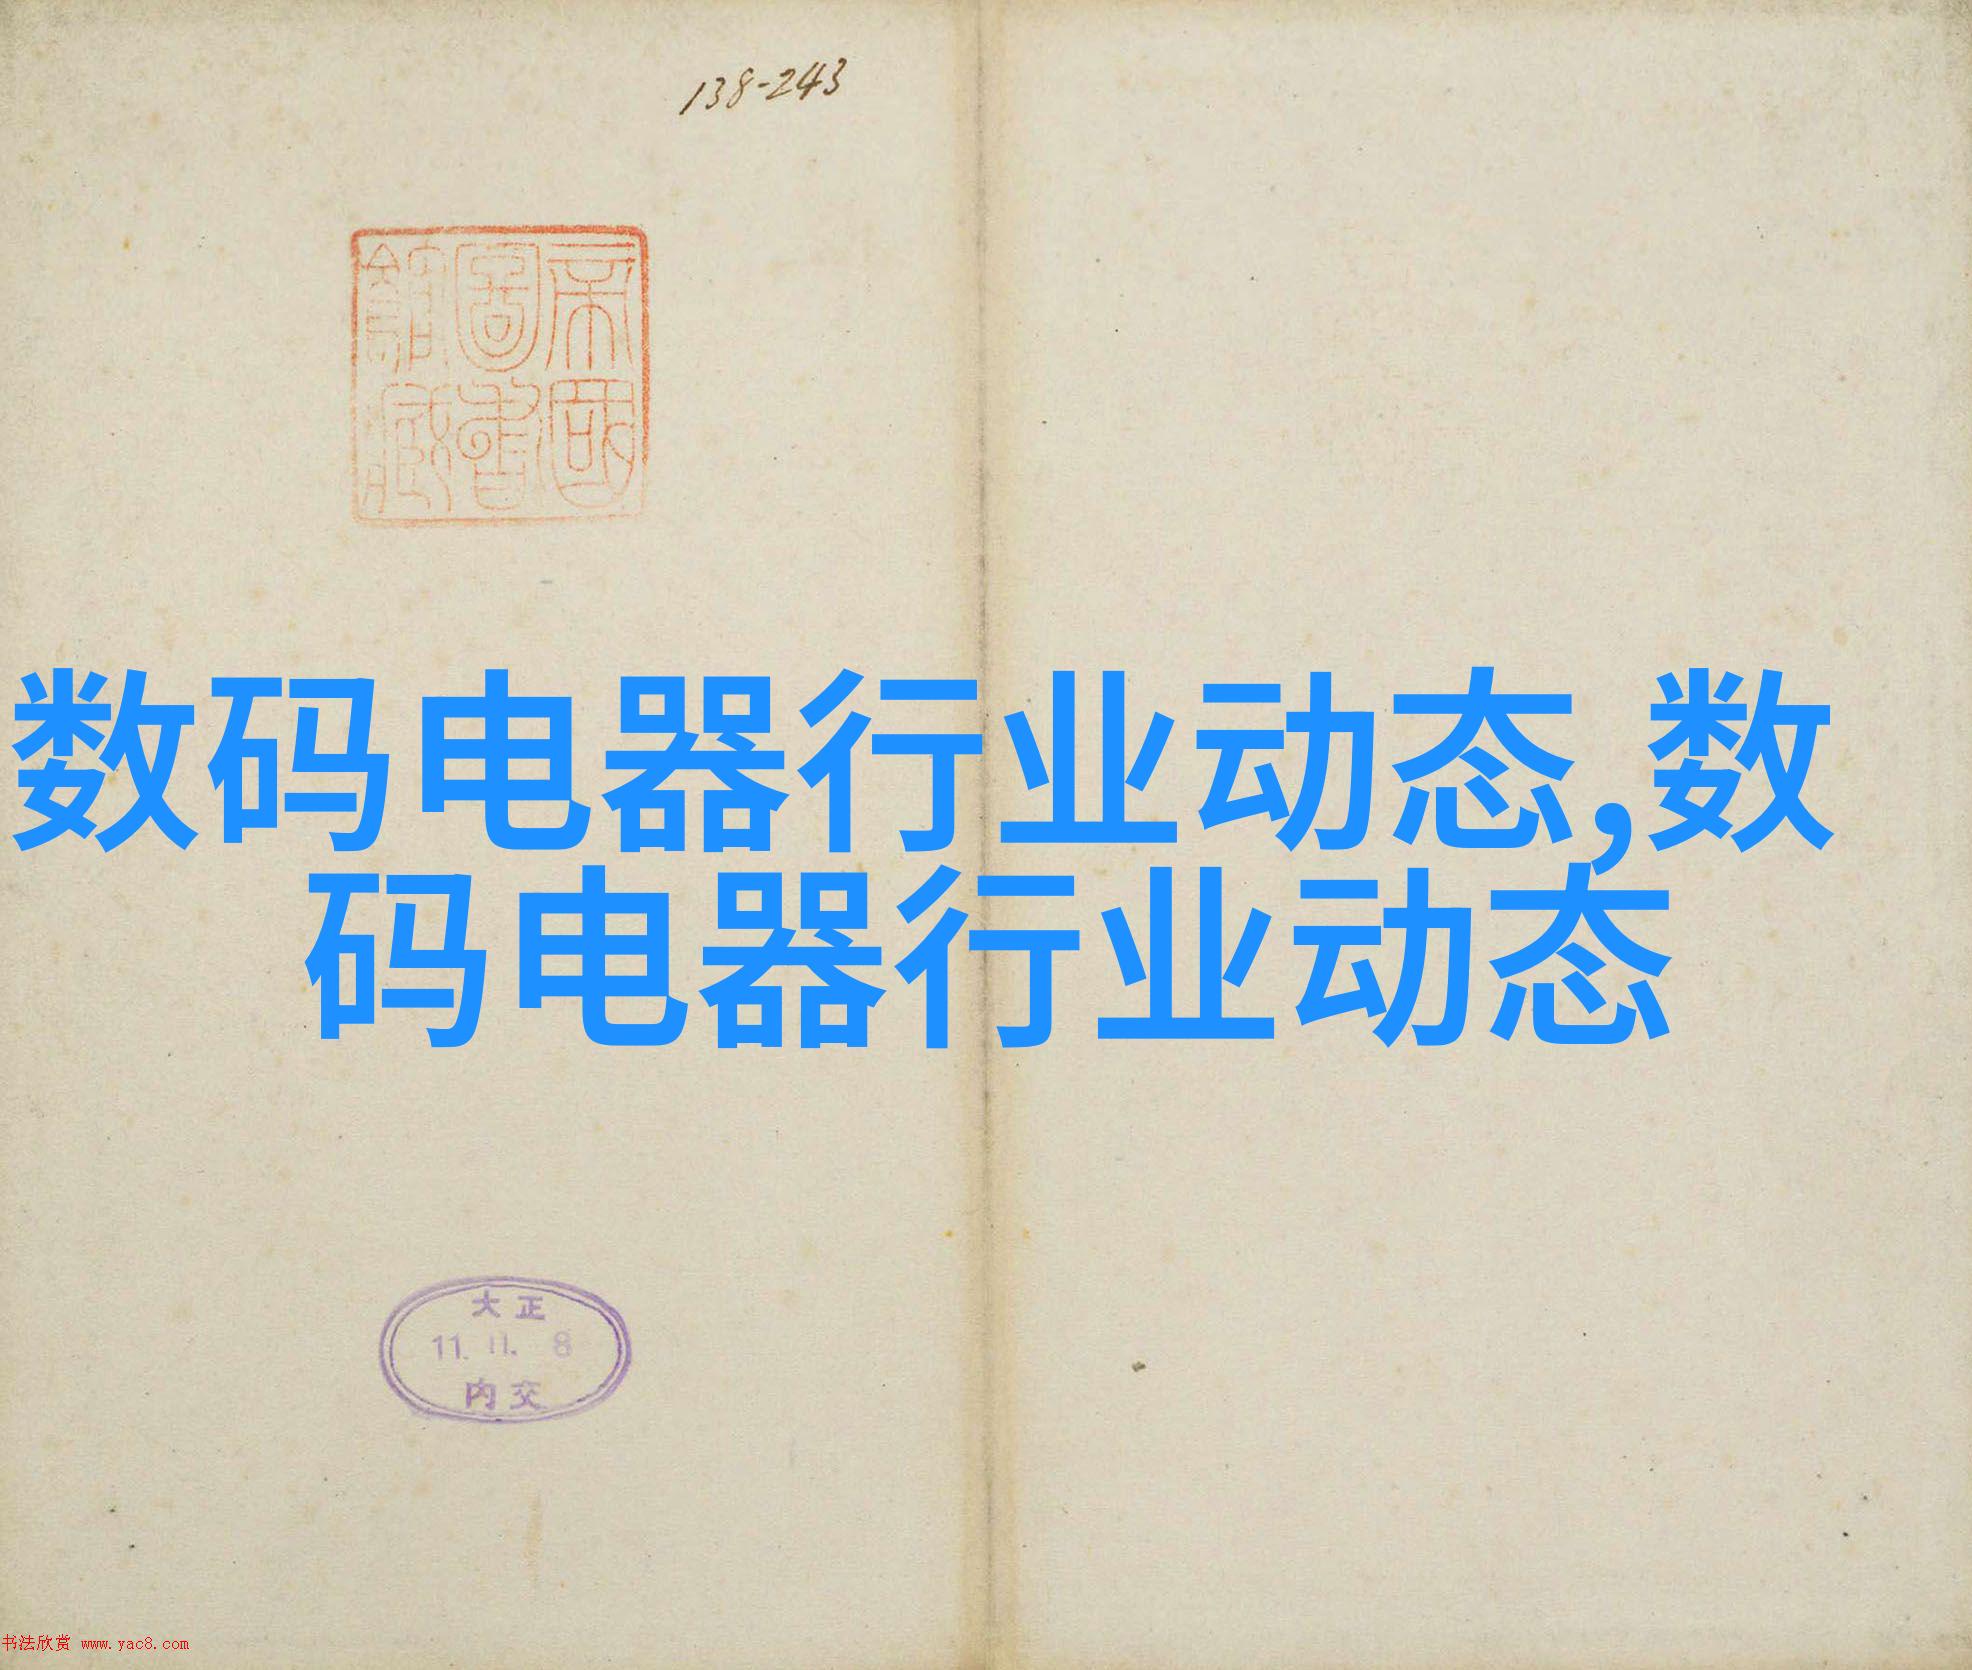 138-243
帝國
圖書
館藏
数码电器行业动态,数
码电器行业动态
大正
11. 11. 8
内交
书法欣赏 www.yac8.com